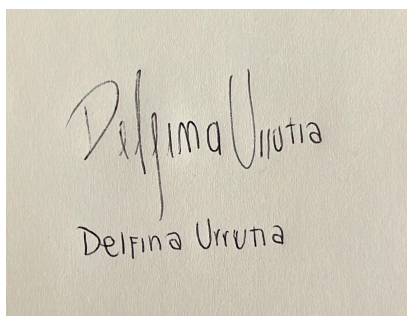 Delfina Urrutia
Delfina Urrutia